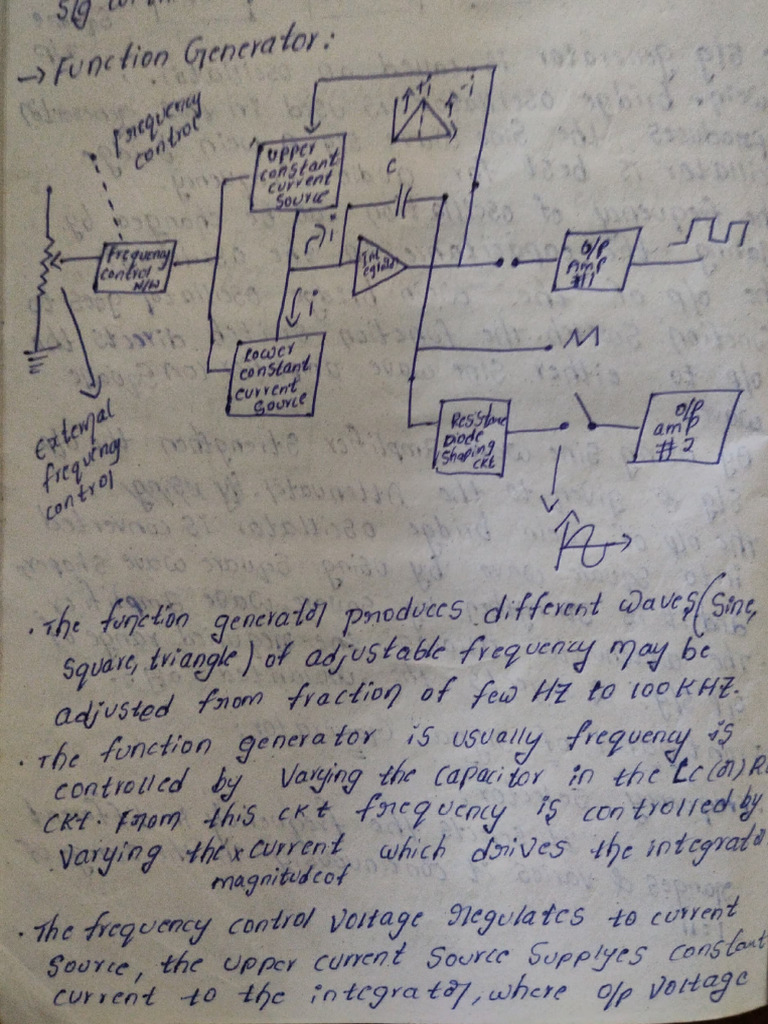 → Function Generator:
frequency
control
upper
constant
current
source
+i
-i
C
i
frequency
control
N/W
Int
egrator
O/P
Amp
#1
i
Lower
constant
current
source
External
frequency
control
Resistance
Diode
Shaping
CKt
O/P
amp
#2
. The function generator produces different waves (Sine,
Square, triangle) of adjustable frequency may be
adjusted from fraction of few HZ to 100KHZ.
. The function generator is usually frequency is
controlled by Varying the capacitor in the LC (or) R
CKT. From this ckt frequency is controlled by
Varying the x current which drives the integrator
magnitude of
. The frequency control Voltage regulates to current
Source, the upper current Source Supplyes constant
current to the integrator, where O/P Voltage